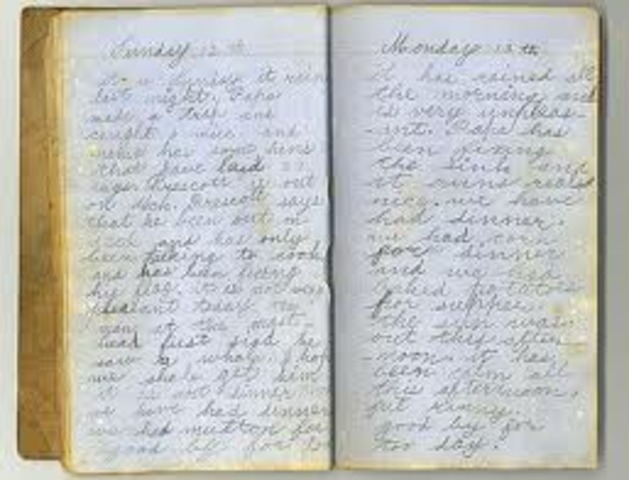 Sunday 12 th
it is Sunday it rain
last night. Papa
made a trap and
caught a mice and
has some hens
that have laid
eggs. Prescott is out
on deck. Prescott says
that he been out on
deck and has only
been talking to cook
and has been
his it is not very
pleasant today the
man at the mast
head first sigd he
saw a whale. I hope
we shale get him
it is not dinner
we have had dinner
we had mutton for
good by for to
Monday 13 th
it has rained all
the morning and
is very unpleas
ant. Papa has
been fixing
the sink and
it runs real
nice. we have
had dinner.
we had corn
for dinner
and we had
baked potatoes
for supper.
the sun was
out this after
noon. it has
been calm all
this afternoon.
good by for
too day.